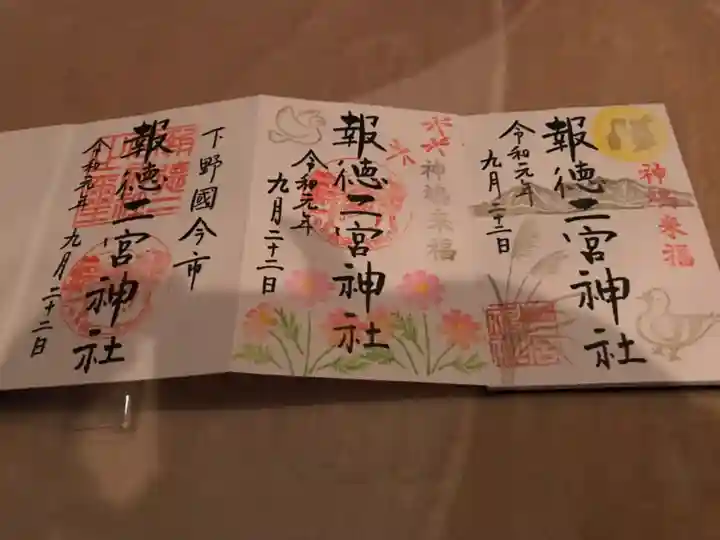 神鳩来福
令和元年
九月二十二日
報徳二宮神社
神鳩来福
報徳二宮神社
令和元年
九月二十二日
下野國今市
報徳二宮神社
令和元年 九月二十二日